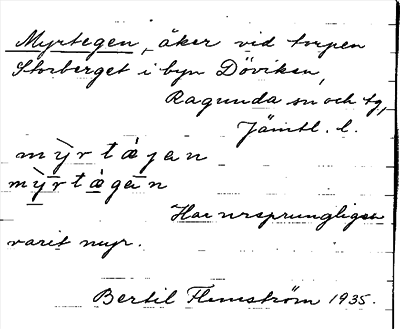 Myrtegen, åker vid torpen
Storberget i byn Döviken,
Ragunda sn och tg,
Jämtl. l.
mỳrtàjan
mỳrtàgan
Har ursprungligen
varit myr.
Bertil Flemström 1935.